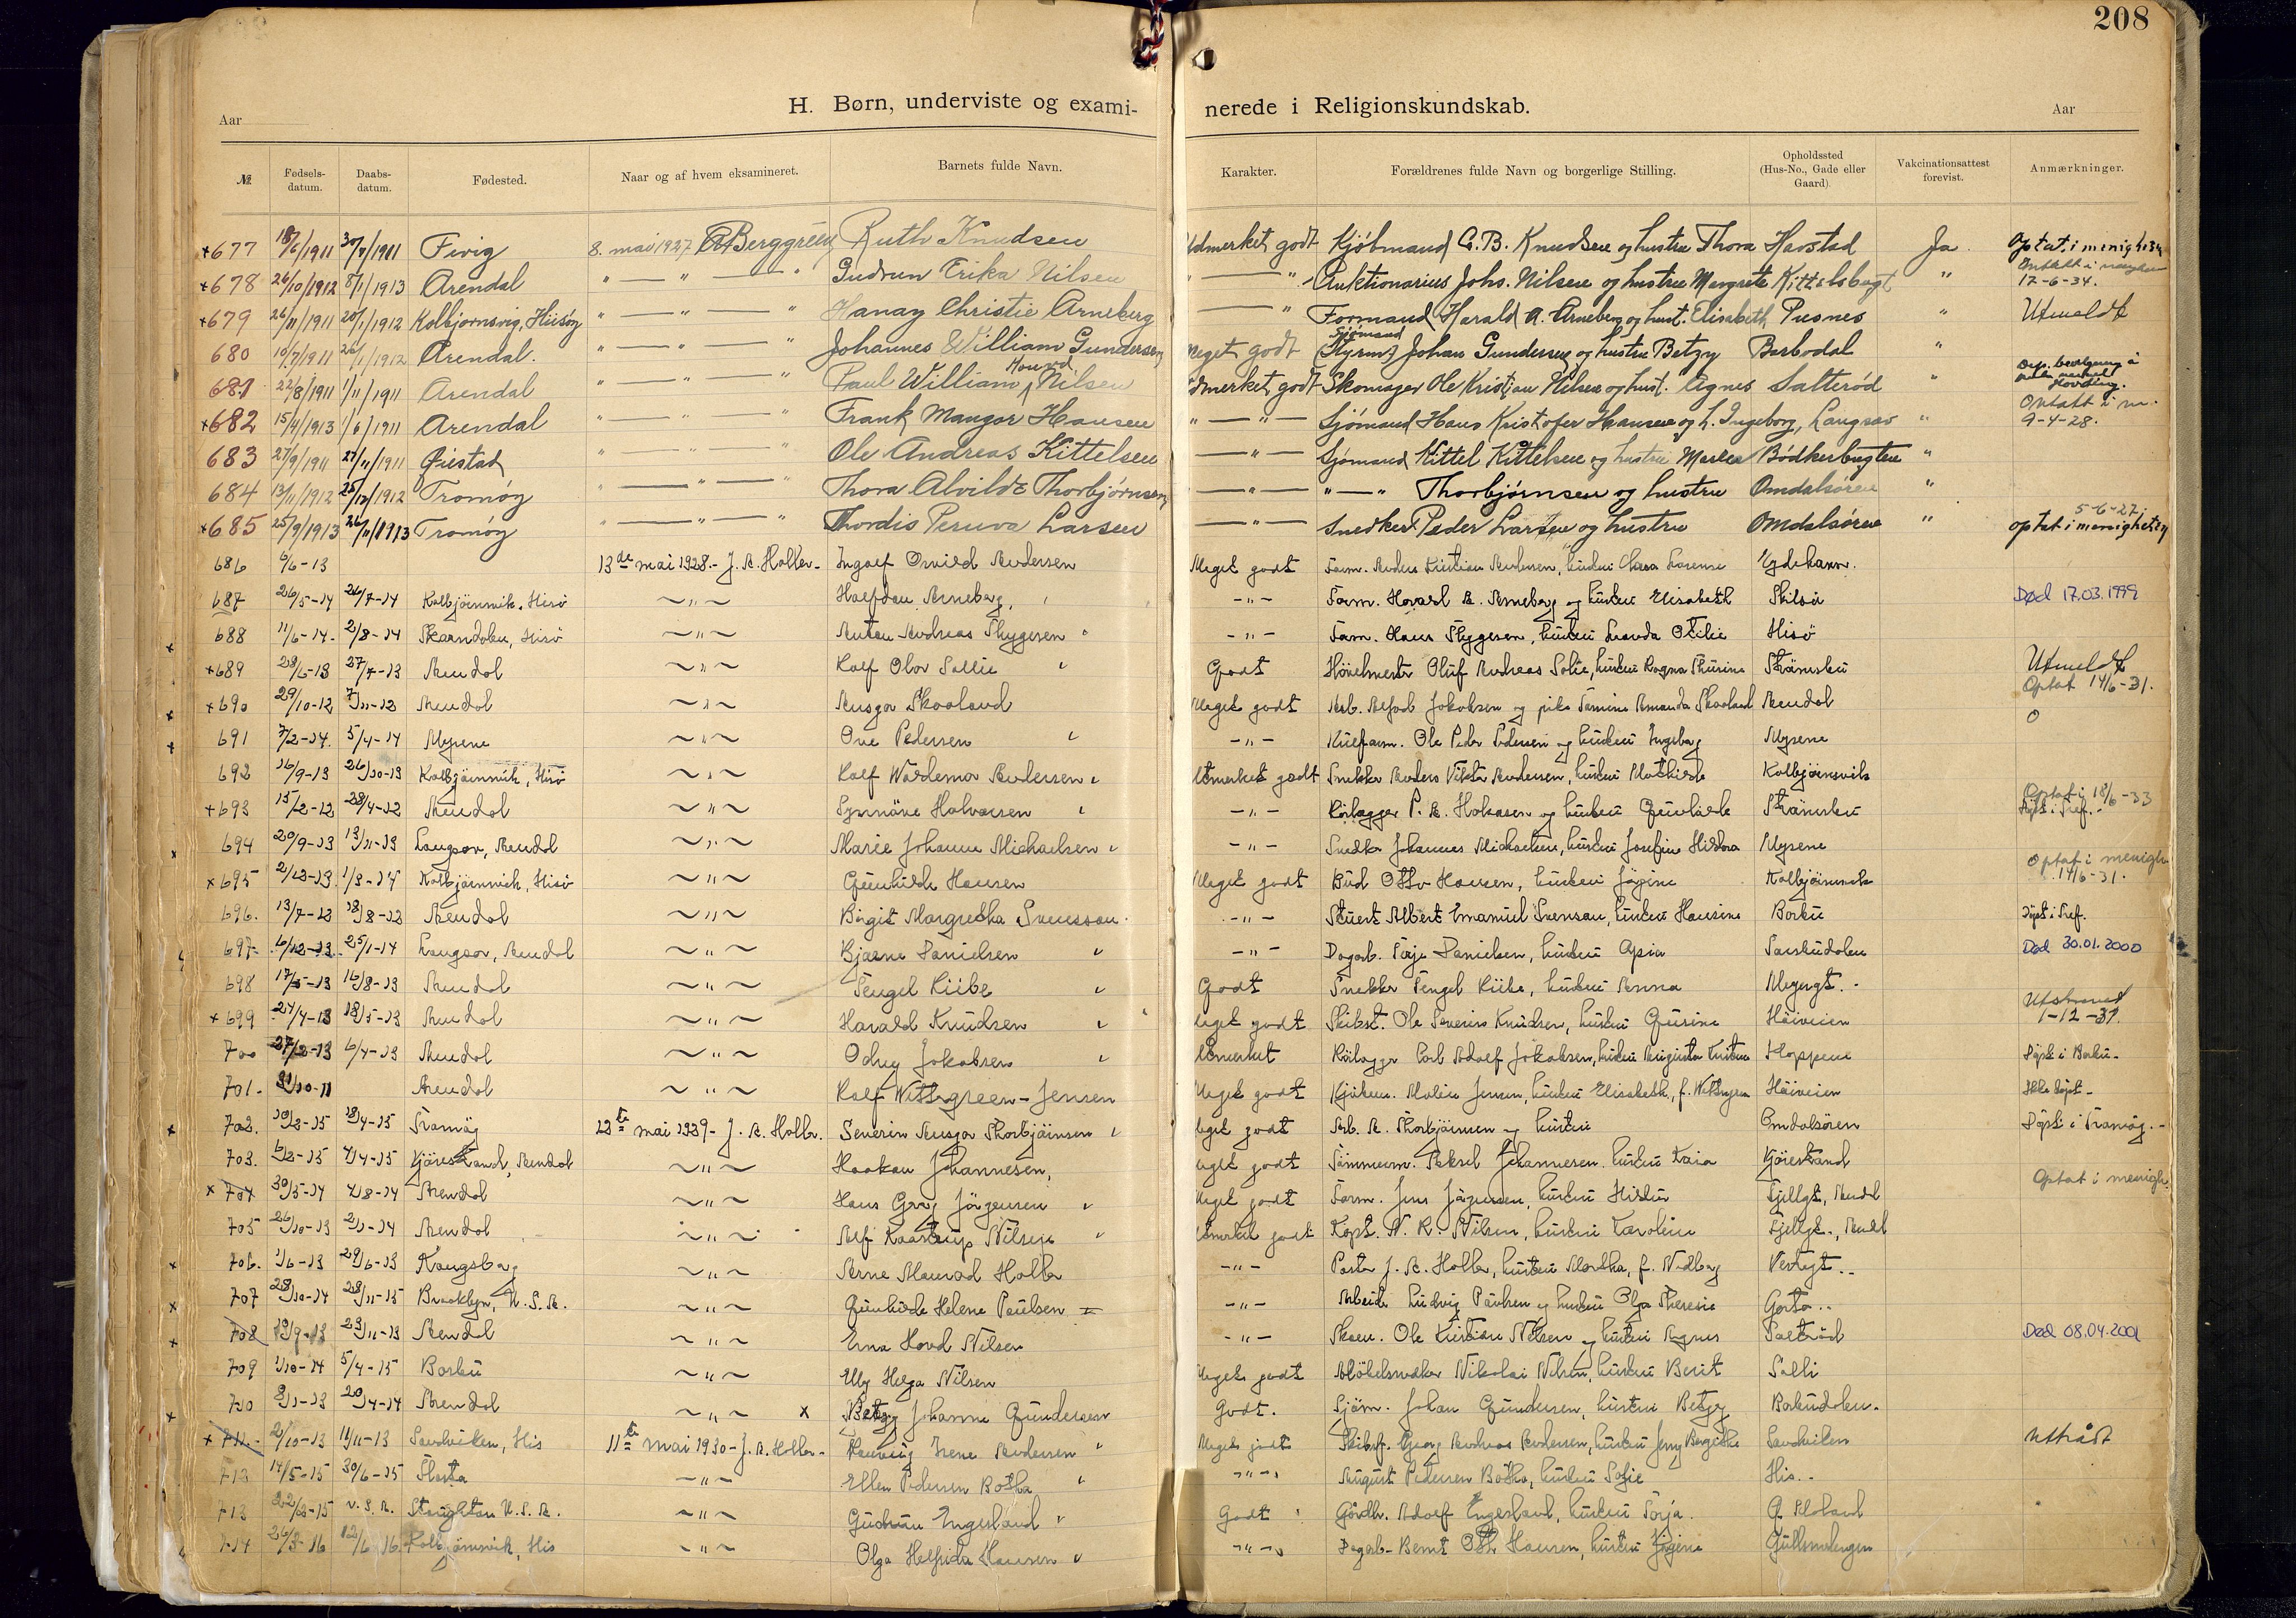 208
H. Børn, underviste og exami- nerede i Religionskundskab.
Aar Aar
№ Fødsels-datum. Daabs-datum. Fødested. Naar og af hvem eksamineret. Barnets fulde Navn. Karakter. Forældrenes fulde Navn og borgerlige Stilling. Opholdssted (Hus-No., Gade eller Gaard). Vakcinationsattest forevist. Anmærkninger.
+677 18/6/1911 30/7/1911 Fevig 8. mai 1927 Berggreen Ruth Knudsen Udmerket godt Kjøbmand C. B. Knudsen og hustru Thora Havstad Ja Optat i menigheten
+678 26/10/1912 8/1/1913 Arendal " — " — " Gudrun Erika Nilsen — " Auktionarius Johs. Nilsen og hustru Margrete Kittelsbugt " 17-6-34.
+679 26/11/1911 20/1/1912 Kolbjornsvig, Hisøy " — " — " Hanay Christie Arneberg — " Formand Harald A. Arneberg og hust. Elisabeth Pusnes " Utmeldt
680 10/7/1911 26/1/1912 Arendal. " — " — " Johannes William Gundersen Meget godt Sjømand (Styrm) Johan Gundersen og hustru Betzy Barbodal "
681 22/8/1911 1/11/1911 Arendal " — " — " Paul William Howard Nilsen Udmerket godt Skomager Ole Kristian Nilsen og hust. Agnes Salterød "
+682 15/4/1913 1/6/1911 Arendal " — " — " Frank Mangor Hansen " — " — Sjømand Hans Kristofer Hansen og h. Ingeborg, Langsæv " Optatt i m. 9-4-28.
683 27/9/1911 27/11/1911 Øiestad " — " — " Ole Andreas Kittelsen — " — Sjømand Kittel Kittelsen og hustru Maren Bødkerbugten "
684 13/11/1912 25/12/1912 Tromøy " — " — " Thora Alvilde Thorbjørnsen — " — " — " Thorbjørnsen og hustru Omdalsøren "
+685 25/9/1913 26/11/1913 Tromøy " — " — " Thordis Peruva Larsen — " — Snedker Peder Larsen og hustru Omdalsøren " 5-6-27 optat i menigheten
686 6/6-13 13de mai 1928.- J. A. Holler- Ingolf Andersen Meget godt Form. Anders Kristian Andersen, hustru Clara Lorense Hydehavn.
687 26/5-14 26/7-14 Kolbjörnsvik, Hisö ~ " ~ Halfdan Arneberg -"- Form. Harald A. Arneberg og hustru Elisabeth Skilsö Død 17.03.1999
688 11/6-14. 2/8-14 Skarndalen, Hisö ~ " ~ Anton Andreas Thygesen " -"- Form. Hans Thygesen, hustru Otilie Hisö
+689 28/6-13 27/7-13 Arendal ~ " ~ Rolf Olav Solli " Godt Oluf Andreas Solie, hustru Ragna Thurine Strömsbu Utmeldt
+690 29/10-12 7/11-12 Arendal ~ " ~ Ansgar Skaaland Meget godt Arb. Alfred Jakobsen og pike Tomine Amanda Skaaland Arendal Optat 14/6-31.
691 7/2-14. 5/4-14 Myrene ~ " ~ Ove Pedersen " -"- Kulform. Ole Peder Pedersen og hustru Ingeborg Myrene O
692 16/9-13 26/10-13 Kolbjörnsvik, Hisö ~ " ~ Rolf Waldemar Andersen " Utmerket godt Snekker Anders Viktor Andersen, hustru Mathilde Kolbjörnsvik
+693 15/2-12 28/4-12 Arendal ~ " ~ Synnöve Halvorsen " -"- Rörlegger P. A. Hokasen og hustru Gunhilde Strömsbu Optat i 18/6-33 Döpt i Tref.-
694 20/9-13 13/11-13 Langsæv, Arendal ~ " ~ Marie Johanne Michaelsen " -"- Snedker Johannes Michaelsen, hustru Josefine Hildora Myrene
+695 2/12-13. 1/3-14 Kolbjörnsvik, Hisö ~ " ~ Gunhilde Hansen Meget godt Bud Otto Hansen, hustru Jörgine Kolbjörnsvik Optat i menigh 14/6-31.
696. 13/7-13 18/8-13 Arendal ~ " ~ Birgit Margretha Svensson. -"- Stuert Albert Emanuel Svenson, hustru Hansine Barbu Döpt i Tref.
697- 6/12-13. 25/1-14 Langsæv, Arendal ~ " ~ Bjarne Danielsen " -"- Dagarb. Terje Danielsen, hustru Asia Parkudalen Død 30.01.2000
698 17/5-13 16/8-13 Arendal ~ " ~ Tengel Kiibe " Godt Snekker Tengel Kiibe, hustru Anna Myrgt.-
+699 24/4-13 18/5-13 Arendal ~ " ~ Harald Knudsen " Meget godt Skibst. Ole Severin Knudsen, hustru Gusine Höiveien Utstrømet 1-12-37.
700 27/2-13 6/4-13 Arendal ~ " ~ Odny Jakobsen " Utmerket Rörlegger Carl Adolf Jakobsen, hustru Augusta Kristine Hoppene Döpt i Barbu-
701- 31/10-11 Arendal ~ " ~ Rolf Wittsgreen-Jensen Meget godt Kjökem. Jensen, hustru Elisabeth, f. Wittsgreen Höiveien Ikke döpt-
702. 10/2-15 18/4-15 Tromöy 12te mai 1929- J. A. Holler. Severin Ansgar Thorbjörnsen " Meget godt Arb. A. Thorbjörnsen og hustru Omdalsören Döpt i Tromöy.-
703. 6/2-15 4/4-15 Kjörestrand, Arendal ~ " ~ Haakon Johannesen, Meget godt Tömmerm. Aksel Johannesen, hustru Kaia Kjöiestrand
x 704 30/5-14 4/8-14 Arendal ~ " ~ Hans Georg Jörgensen " Meget godt Form. Jens Jörgensen, hustru Hildur Fjellgt, Arendl Optat i menigh.
705 26/10-13 2/1-14 Arendal ~ " ~ Alf Kaastrup Nilsen " Utmerket godt Kapt. N. K. Nilsen, hustru Karoline Fjellgt-, Arendl
706. 1/6-13 29/6-13 Kongsberg ~ " ~ Arne Holler -"- Pastor J. A. Holler, hustru Martha, f. Vestregt..
707 28/10-14 28/11-15 Brooklyn, U.S.A. ~ " ~ Gunhilde Helene Paulsen -"- Arbeider Ludvig Paulsen og hustru Olga Theresie Gorta..
708 19/9-13 23/11-13 Arendal ~ " ~ Erna Hovd Nilsen -"- Skom. Ole Kristian Nilsen og hustru Agnes Saltröd Død 08.04.2001
709 1/10-14 5/4-15 Barbu ~ " ~ Elly Helga Nilsen Meget godt Möbelsnedker Nikolai Nilsen, hustru Berit Solli
710 9/1-13 20/4-14 Arendal ~ " ~ x Betzy Johanne Gundersen Godt. Sjöm. Johan Gundersen, hustru Betzy Barbudalen.
x 711.- 2/10-13 11/11-13 Sandviken, His 11te mai 1930- J. A. Holler- Irene Andersen " Meget godt Skibsf. Georg Andreas Andersen, hustru Jenny Bergithe Sandviken Uttrådt
712 14/5-15 30/6-15 Flosta ~ " ~ Ellen Pedersen Botha " -"- August Pedersen Botha, hustru Sofie His..
713 22/12-15 U.S.A. Stoughton U.S.A. ~ " ~ Gudrun Engesland " Godt Gårdbr. Adolf Engesland, hustru Torja.
714 26/3-16 12/6-16 Kolbjörnsvik, His ~ " ~ Olga Helfrida Hansen " -"- Dagarb- Bernt Otto Hansen, hustru Jörgine Gullsmedengen